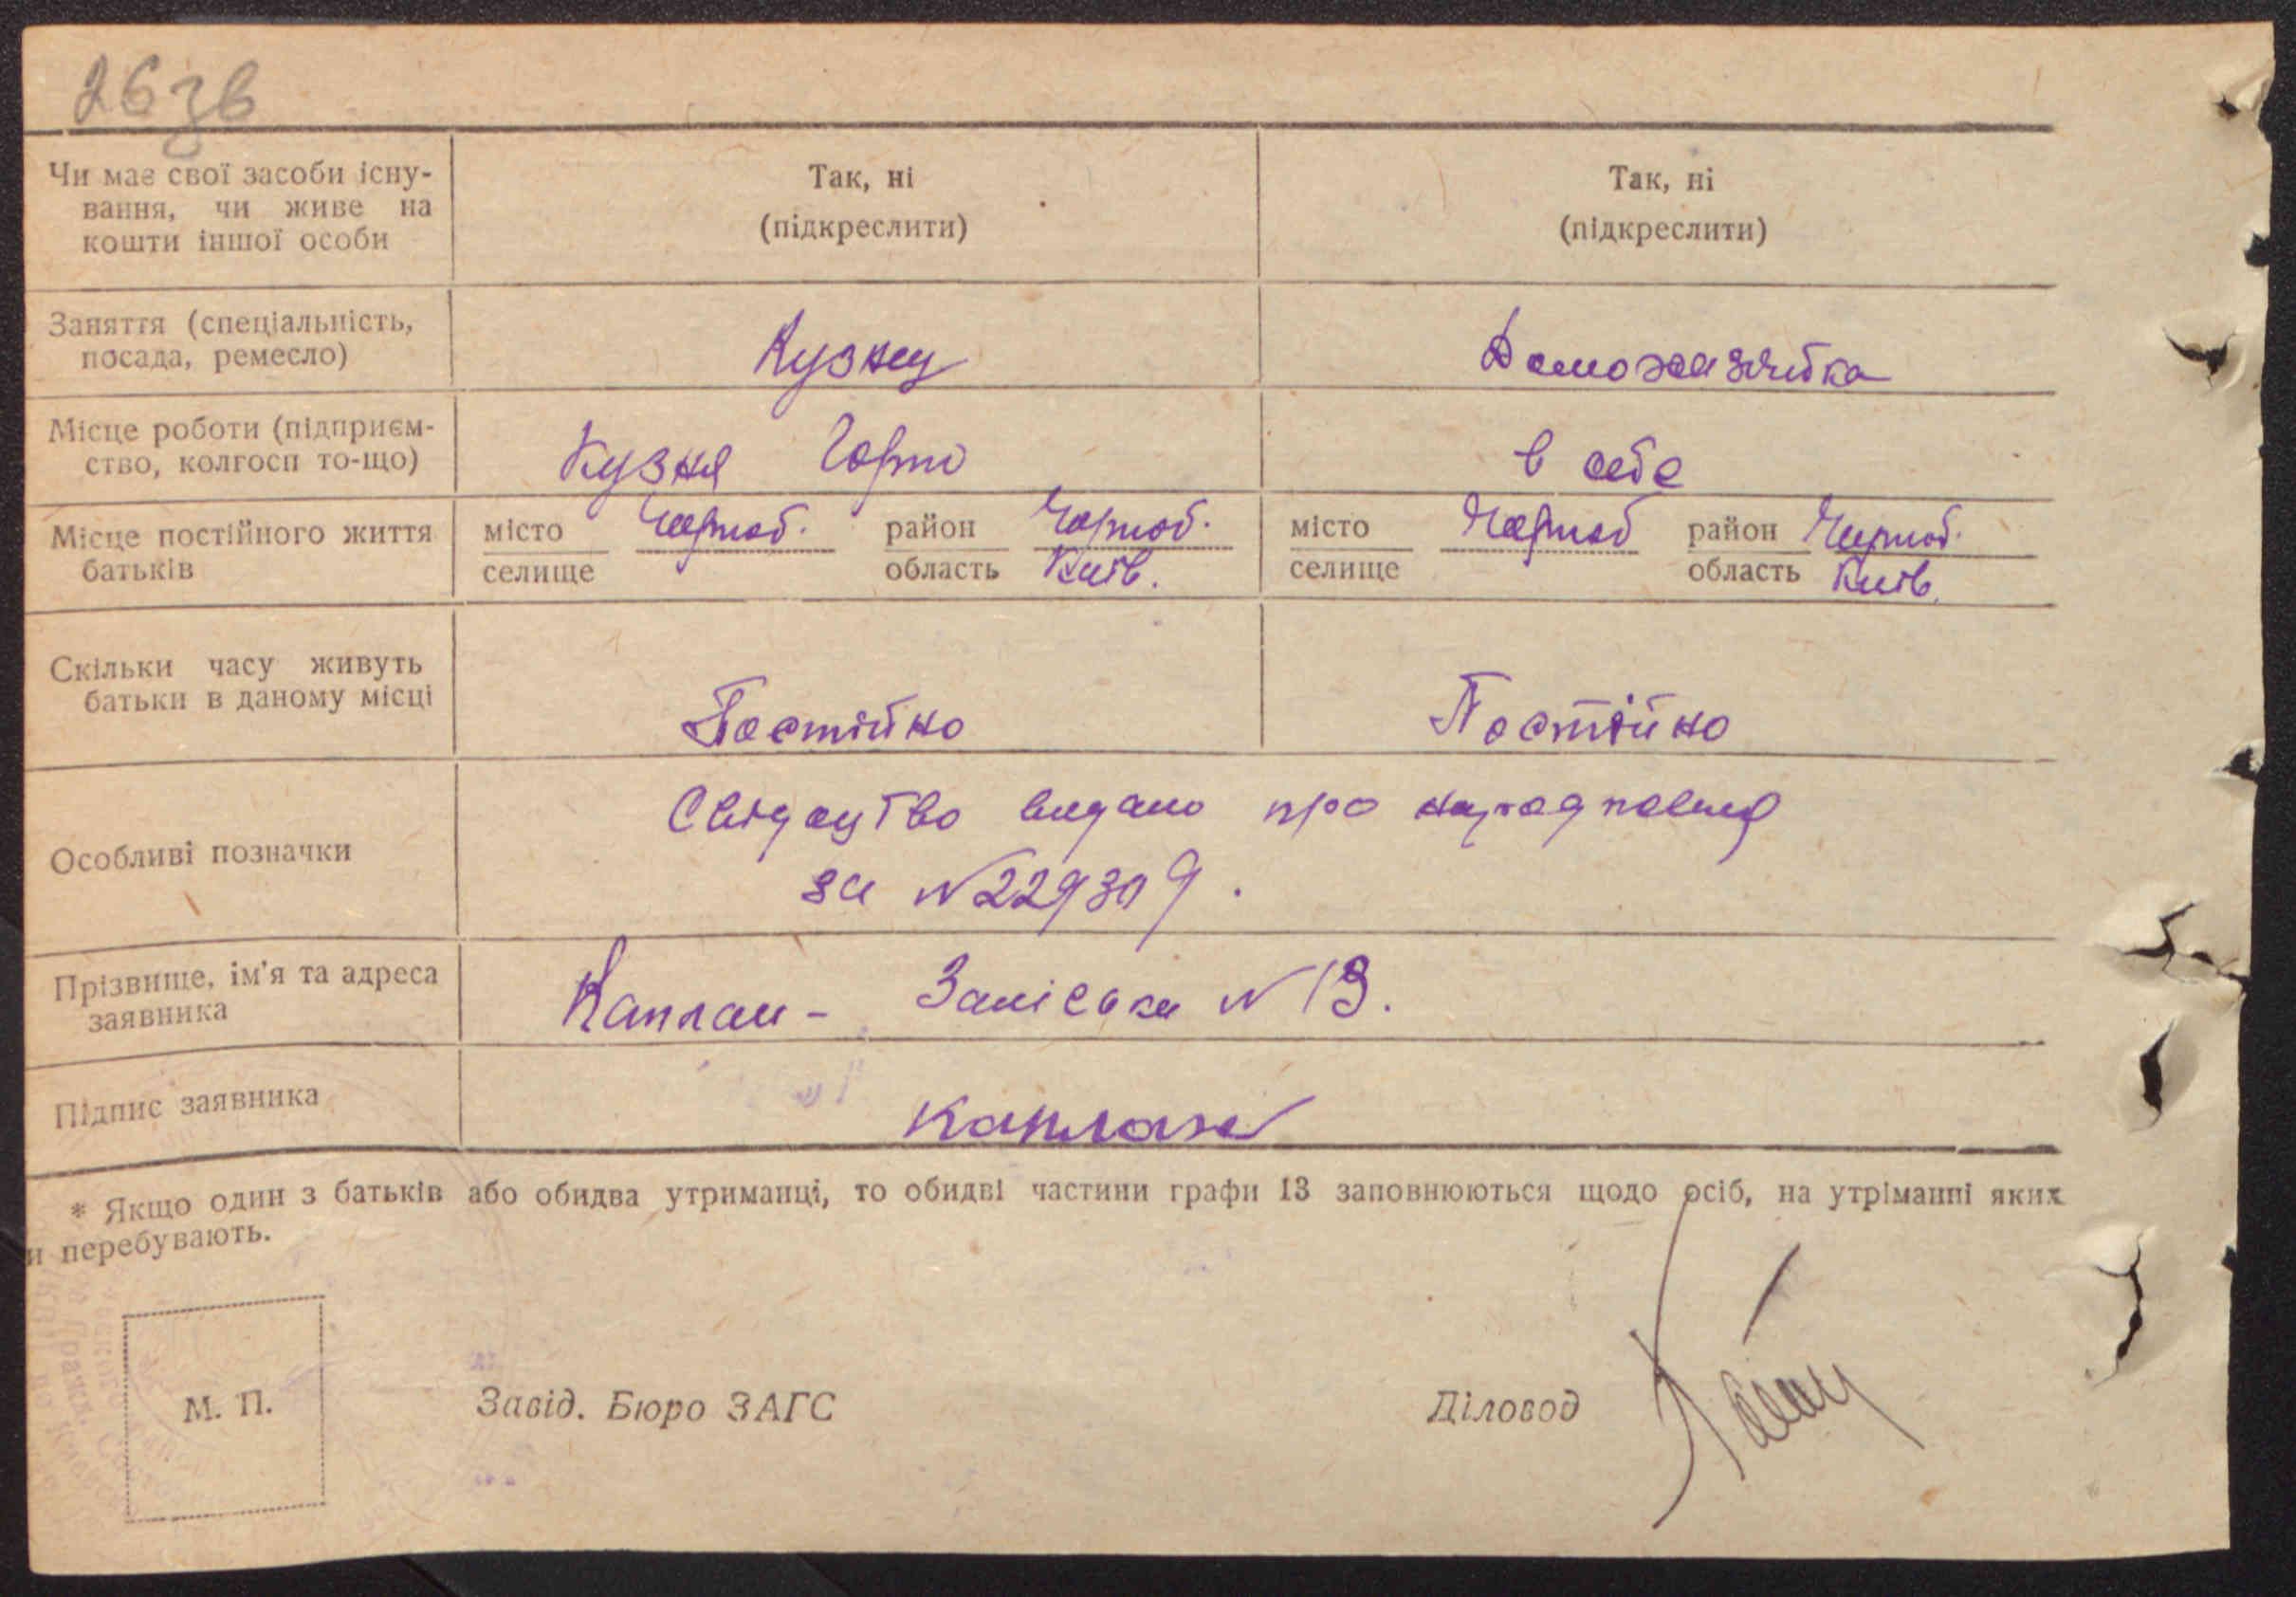 26 зв
Чи має свої засоби існу-
вання, чи живе на
кошти іншої особи
Так, ні
(підкреслити)
Так, ні
(підкреслити)
Заняття (спеціальність,
посада, ремесло)
Кузнец
Домохазяйка
Місце роботи (підприєм-
ство, колгосп то-що)
Кузня
в себе
Місце постійного життя
батьків
місто Чорноб. район Чорноб.
селище область Київ.
місто Чорноб район Чорноб.
селище область Київ.
Скільки часу живуть
батьки в даному місці
Постійно
Постійно
Особливі позначки
Свідоцтво видано про народження
за №229309.
Прізвище, ім'я та адреса
заявника
Каплан - №13.
Підпис заявника
Каплан
* Якщо один з батьків або обидва утриманці, то обидві частини графи 13 заповнюються щодо осіб, на утріманні яких
и перебувають.
М. П.
Завід. Бюро ЗАГС
Діловод